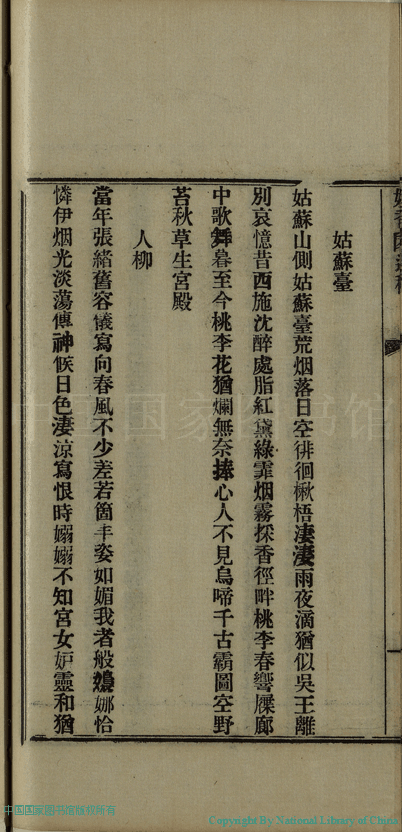 姑蘇臺
姑蘇山側姑蘇臺荒烟落日空徘徊楸梧淒淒雨夜滴猶似吳王離
別哀憶昔西施沈醉處脂紅黛綠霏烟霧採香徑畔桃李春響屧廊
中歌舞暮至今桃李花猶爛無奈捧心人不見烏啼千古霸圖空野
苔秋草生宮殿
人柳
當年張緒舊容儀寫向春風不少差若箇丰姿如媚我者般嬝娜恰
憐伊烟光淡蕩傳神候日色淒涼寫恨時嫋嫋不知宮女妒靈和猶
中国国家图书馆
中国国家图书馆版权所有
Copyright By National Library of China